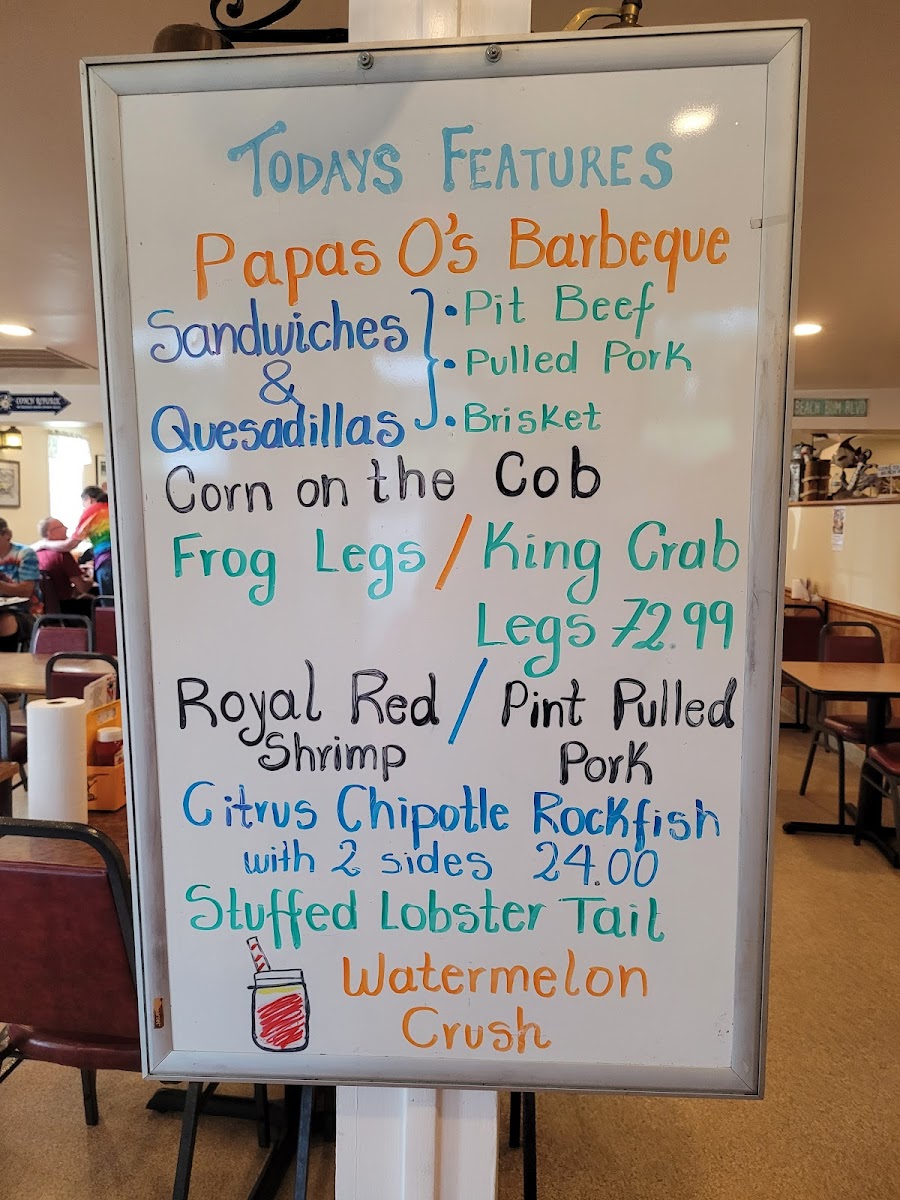 TODAYS FEATURES
Papas O's Barbeque
Sandwiches
&
Quesadillas
• Pit Beef
• Pulled Pork
• Brisket
Corn on the Cob
Frog Legs / King Crab
Legs 72.99
Royal Red / Pint Pulled
Shrimp Pork
Citrus Chipotle Rockfish
with 2 sides 24.00
Stuffed Lobster Tail
Watermelon
Crush
CONCH REPUBLIC
BEACH BUM BLVD